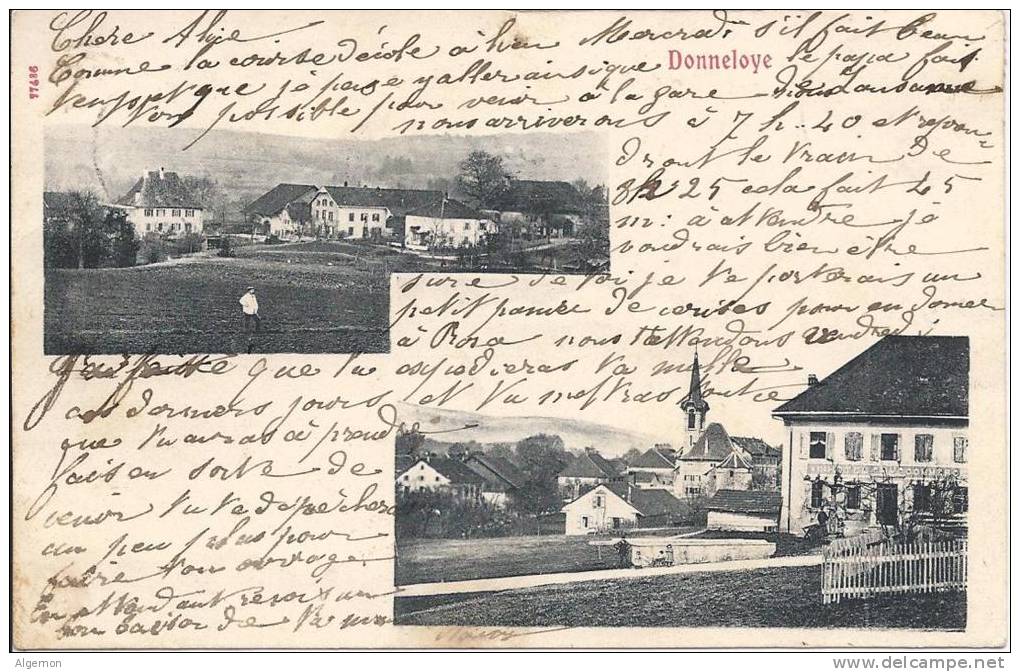 Chere Alice
la course d'école à lieu Mercredi s'il fait beau
Comme
Donneloye
le papa fait
77686
que je pense y aller ainsi que
possible pour venir à la gare Lausanne
nous arriverons à 7 h. 40 et repren=
dront le train de
8h 25 cela fait 45
m: à attendre je
voudrais bien être
sure de toi je te porterais un
petit panier de cerises pour en donner
à Rosa nous t'attendons vendredi
que tu expédieras ta malle
ces derniers jours et tu mettras
que tu auras à prendre
fais en sorte de
venir tu te dépêcheras
un peu plus pour
faire ton ouvrage
En attendant reçois un
bon baiser de ta
Algemon
www.delcampe.net